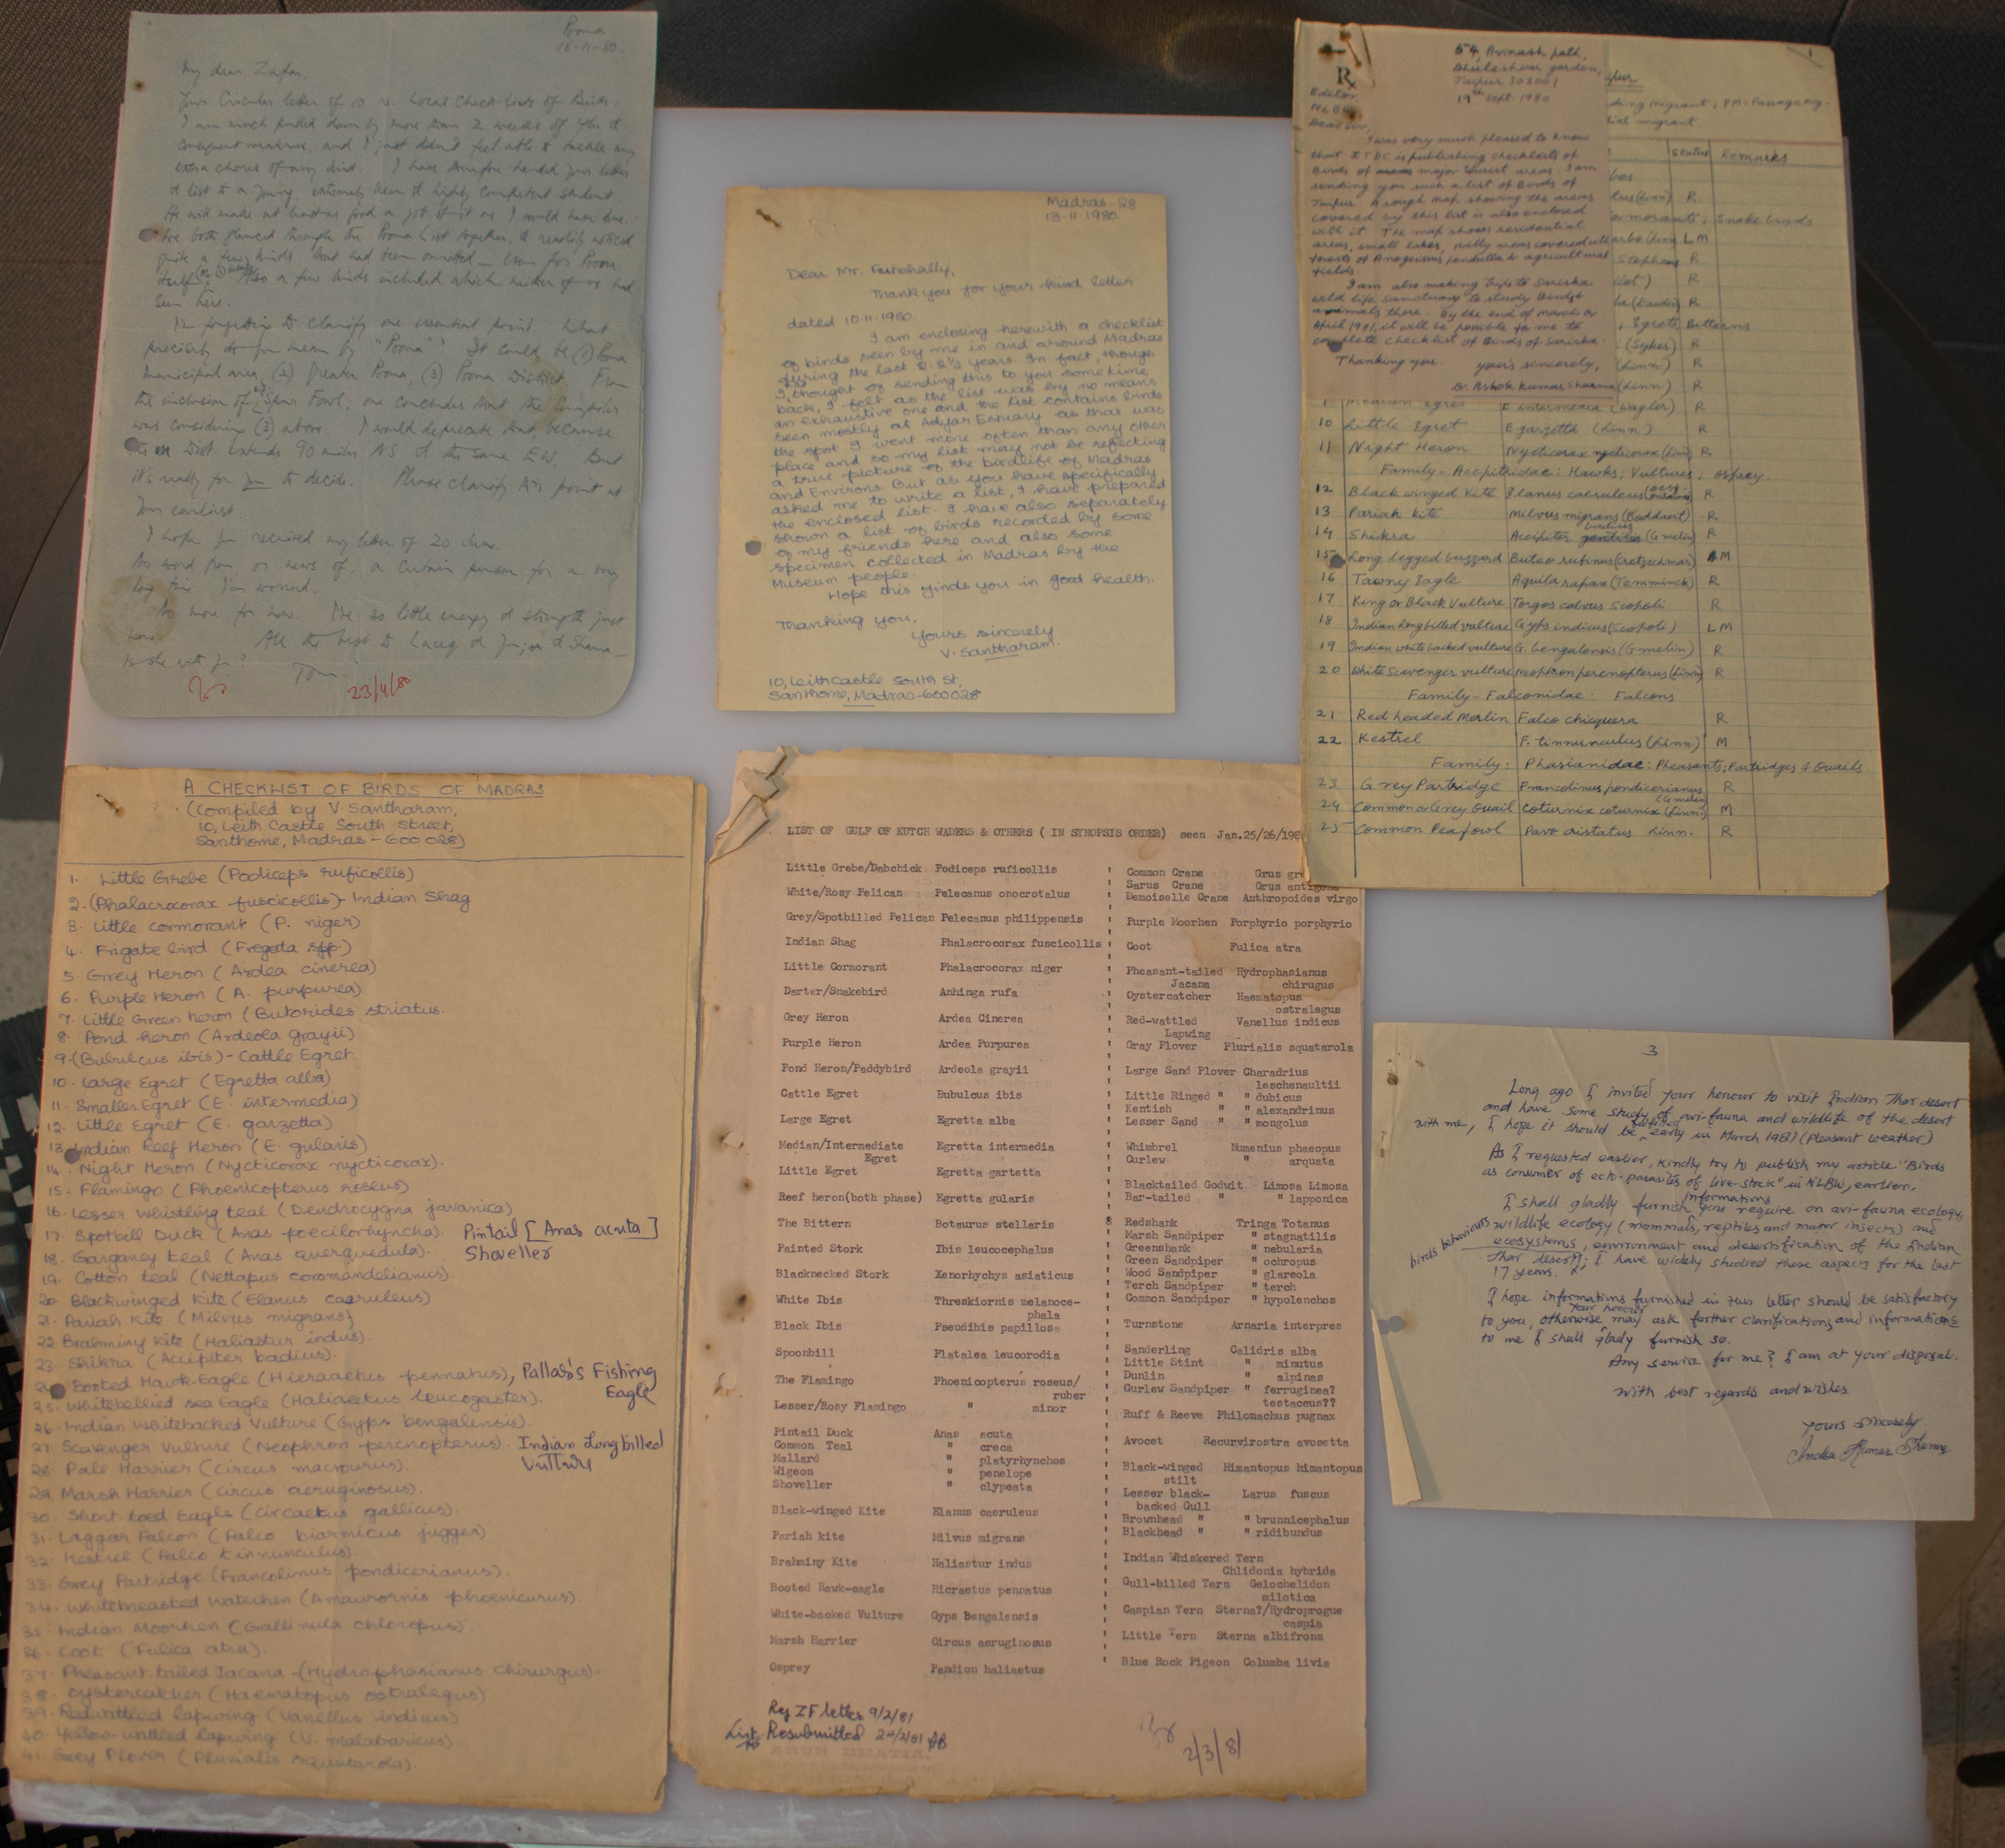 Poona
My dear Zafar,
Your Circular letter of 10 re. Local Check-lists of Birds.
I am much pulled down by more than 2 weeks of
consequent weakness, and I just don't feel able to tackle any
extra chores of any kind. I have therefore handed your letter
& list to a young, extremely keen & highly competent student.
He will make at least as good a job of it as I would have done.
We both glanced through the Poona List together, & readily noticed
quite a few birds that had been omitted — even for Poona
itself. Also a few birds included which neither of us had
seen here.
I'm forgetting to clarify one essential point. What
precisely do you mean by "Poona"? It could be (1) Poona
Municipal area, (2) Greater Poona, (3) Poona District. From
the inclusion of Spur Fowl, one concludes that the Compiler
was considering (3) above. I would deprecate that, because
the Dist. extends 90 miles NS & the same EW. But
it's really for you to decide. Please clarify this point at
your earliest.
I hope you received my letter of 20
No word from, or news of, a certain person for a very
long time. I'm worried.
No more for now. I've so little energy & strength just
here. All the best to Laeeq &
Is she with you?
23/4/80
Madras-28
13-11-1980.
Dear Mr. Futehally,
Thank you for your kind letter
dated 10-11-1980.
I am enclosing herewith a checklist
of birds seen by me in and around Madras
during the last 2-2½ years. In fact, though
I thought of sending this to you sometime
back, I felt as the list was by no means
an exhaustive one and the list contains birds
seen mostly at Adyar Estuary as that was
the spot I went more often than any other
place and so my list may not be reflecting
a true picture of the birdlife of Madras
and Environs. But as you have specifically
asked me to write a list, I have prepared
the enclosed list. I have also separately
shown a list of birds recorded by some
of my friends here and also some
specimen collected in Madras by the
Museum people.
Hope this finds you in good health.
Thanking you,
Yours sincerely
V. Santharam.
10, Leith castle South St,
Santhome, Madras-600028
R
54, Avinash path,
Dhuleshwar garden,
Jaipur 302001
19th Sept. 1980
Editor,
NLBW
Dear Sir,
I was very much pleased to know
that ITDC is publishing checklists of
Birds of areas major tourist areas. I am
sending you such a list of Birds of
Jaipur. A rough map showing the areas
covered by this list is also enclosed
with it. The map shows residential
areas, small lakes, Hilly areas covered with
forests of Anogeissus pendula & agricultural
fields.
I am also making trips to Sariska
wild life sanctuary to study Birds &
animals there. By the end of March or
April 1981, it will be possible for me to
complete checklist of Birds of Sariska.
Thanking you. yours sincerely,
Dr. Ashok Kumar Sharma
1
Status Remarks
9 Median Egret E. intermedia (Wagler) R
10 Little Egret E garzetta (Linn.) R
11 Night Heron Nycticorax nycticorax (Linn) R
Family - Accipitridae: Hawks; Vultures; Osprey.
12 Black winged Kite Elanus caeruleus R
13 Pariah kite Milvus migrans (Boddaert) R
14 Shikra Accipiter badius (Gmelin) R
15 Long legged buzzard Buteo rufinus (Cretzschmar) M
16 Tawny Eagle Aquila rapax (Temminck) R
17 King or Black Vulture Torgos calvus Scopoli R
18 Indian Long billed vulture Gyps indicus (Scopoli) LM
19 Indian white backed vulture G. bengalensis (Gmelin) R
20 White Scavenger vulture Neophron percnopterus (Linn) R
Family - Falconidae: Falcons
21 Red headed Merlin Falco chicquera R
22 Kestrel F. tinnunculus (Linn.) M
Family: Phasianidae: Pheasants; Partridges & Quails
23 Grey Partridge Francolinus pondicerianus (Gmelin) R
24 Common or Grey Quail Coturnix coturnix (Linn.) M
25 Common Peafowl Pavo cristatus Linn. R
A CHECKLIST OF BIRDS OF MADRAS
(Compiled by V. Santharam,
10, Leith Castle South Street,
Santhome, Madras-600028)
1. Little Grebe (Podiceps ruficollis)
2. (Phalacrocorax fuscicollis)- Indian Shag
3. Little cormorant (P. niger)
4. Frigate bird (Fregata spp.)
5. Grey Heron (Ardea cinerea)
6. Purple Heron (A. purpurea)
7. Little Green heron (Butorides striatus.
8. Pond heron (Ardeola grayii)
9. (Bubulcus ibis)-Cattle Egret.
10. Large Egret (Egretta alba)
11. Smaller Egret (E. intermedia)
12. Little Egret (E. garzetta)
13. Indian Reef Heron (E. gularis)
14. Night Heron (Nycticorax nycticorax).
15. Flamingo (Phoenicopterus roseus)
16. Lesser Whistling teal (Dendrocygna javanica)
17. Spotbill Duck (Anas poecilorhyncha). Pintail [Anas acuta]
18. Garganey teal (Anas querquedula). Shoveller
19. Cotton teal (Nettapus coromandelianus).
20. Blackwinged Kite (Elanus caeruleus)
21. Pariah Kite (Milvus migrans)
22. Brahminy Kite (Haliastur indus).
23. Shikra (Accipiter badius).
24. Booted Hawk-Eagle (Hieraaetus pennatus), Pallas's Fishing Eagle
25. Whitebellied sea Eagle (Haliaeetus leucogaster).
26. Indian Whitebacked Vulture (Gyps bengalensis).
27. Scavenger Vulture (Neophron percnopterus). Indian Longbilled Vulture
28. Pale Harrier (Circus macrourus).
29. Marsh Harrier (Circus aeruginosus).
30. Short toed Eagle (Circaetus gallicus).
31. Laggar Falcon (Falco biarmicus jugger)
32. Kestrel (Falco tinnunculus).
33. Grey Partridge (Francolinus pondicerianus).
34. Whitebreasted Waterhen (Amaurornis phoenicurus).
35. Indian Moorhen (Gallinula chloropus).
36. Coot (Fulica atra).
37. Pheasant tailed Jacana -(Hydrophasianus Chirurgus).
38. Oystercatcher (Haematopus ostralegus)
39. Redwattled lapwing (Vanellus indicus)
40. Yellow-wattled lapwing (V. malabaricus).
41. Grey Plover (Pluvialis squatarola).
LIST OF GULF OF KUTCH WADERS & OTHERS ( IN SYNOPSIS ORDER) seen Jan.25/26/198
Little Grebe/Dabchick Podiceps ruficollis
White/Rosy Pelican Pelecanus onocrotalus
Grey/Spotbilled Pelican Pelecanus philippensis
Indian Shag Phalacrocorax fuscicollis
Little Cormorant Phalacrocorax niger
Darter/Snakebird Anhinga rufa
Grey Heron Ardea Cinerea
Purple Heron Ardea Purpurea
Pond Heron/Paddybird Ardeola grayii
Cattle Egret Bubulcus ibis
Large Egret Egretta alba
Median/Intermediate Egret Egretta intermedia
Little Egret Egretta gartetta
Reef heron(both phase) Egretta gularis
The Bittern Botaurus stellaris
Painted Stork Ibis leucocephalus
Blacknecked Stork Xenorhychys asiaticus
White Ibis Threskiornis melanoce-
phala
Black Ibis Pseudibis papillosa
Spoonbill Platalea leucorodia
The Flamingo Phoenicopterus roseus/
ruber
Lesser/Rosy Flamingo " minor
Pintail Duck Anas acuta
Common Teal " creca
Mallard " platyrhynchos
Wigeon " penelope
Shoveller " clypeata
Black-winged Kite Elanus caeruleus
Pariah kite Milvus migrans
Brahminy Kite Haliastur indus
Booted Hawk-eagle Hicraetus pennatus
White-backed Vulture Gyps Bengalensis
Marsh Harrier Circus aeruginosus
Osprey Pandion haliaetus
Common Crane Grus gr
Sarus Crane Grus antigone
Demoiselle Crane Anthropoides virgo
Purple Moorhen Porphyrio porphyrio
Coot Fulica atra
Pheasant-tailed Hydrophasianus
Jacana chirugus
Oystercatcher Haematopus
ostralegus
Red-wattled Vanellus indicus
Lapwing
Gray Plover Plurialis squatarola
Large Sand Plover Charadrius
leschenaultii
Little Ringed " " dubicus
Kentish " " alexandrinus
Lesser Sand " " mongolus
Whimbrel Numenius phaeopus
Curlew " arquata
Blacktailed Godwit Limosa Limosa
Bar-tailed " " lapponica
Redshank Tringa Totanus
Marsh Sandpiper " stagnatilis
Greenshank " nebularia
Green Sandpiper " ochropus
Wood Sandpiper " glareola
Terch Sandpiper " terch
Common Sandpiper " hypolenchos
Turnstone Arnaria interpres
Sanderling Calidris alba
Little Stint " minutus
Dunlin " alpinas
Curlew Sandpiper " ferruginea?
testaceus??
Ruff & Reeve Philomachus pugnax
Avocet Recurvirostra avosetta
Black-winged Himantopus himantopus
stilt
Lesser black- Larus fuscus
backed Gull
Brownhead " " brunnicephalus
Blackhead " " ridibundus
Indian Whiskered Tern
Chlidonia hybrida
Gull-billed Tern Gelochelidon
milotica
Caspian Tern Sterna?/Hydroprogue
caspia
Little Tern Sterna albifrons
Blue Rock Pigeon Columba livia
ZF letter 9/2/81
List Resubmitted 24/2/81 AB
2/3/81
3
Long ago I invited your honour to visit Indian Thar desert
and have some study of avi-fauna and wildlife of the desert
with me, I hope it should be fulfilled early in March 1981 (Pleasant weather)
As I requested earlier, kindly try to publish my article "Birds
as consumer of ecto-parasites of live-stock" in NLBW, earlier.
I shall gladly furnish informations you require on avi-fauna ecology,
birds behaviours wildlife ecology (mammals, reptiles and major insects) and
ecosystems, environment and desertification of the Indian
Thar desert; I have widely studied these aspects for the last
17 years.
I hope informations furnished in this letter should be satisfactory
to you, otherwise your honour may ask further clarifications and informations
to me I shall glady furnish so.
Any service for me? I am at your disposal.
With best regards and wishes
Yours Sincerely